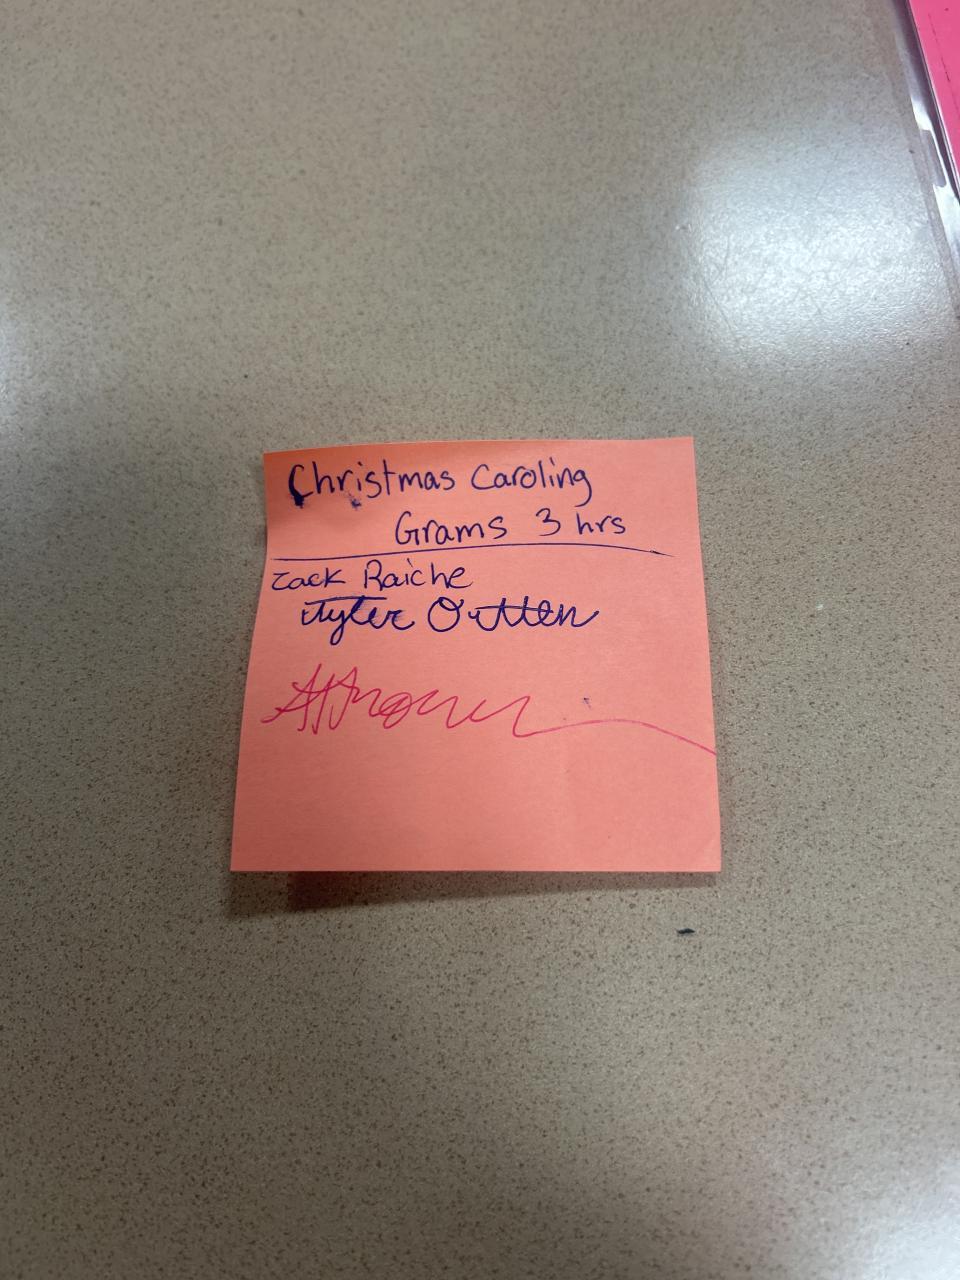 Christmas Caroling
Grams 3 hrs
Zack Raiche
Tyler